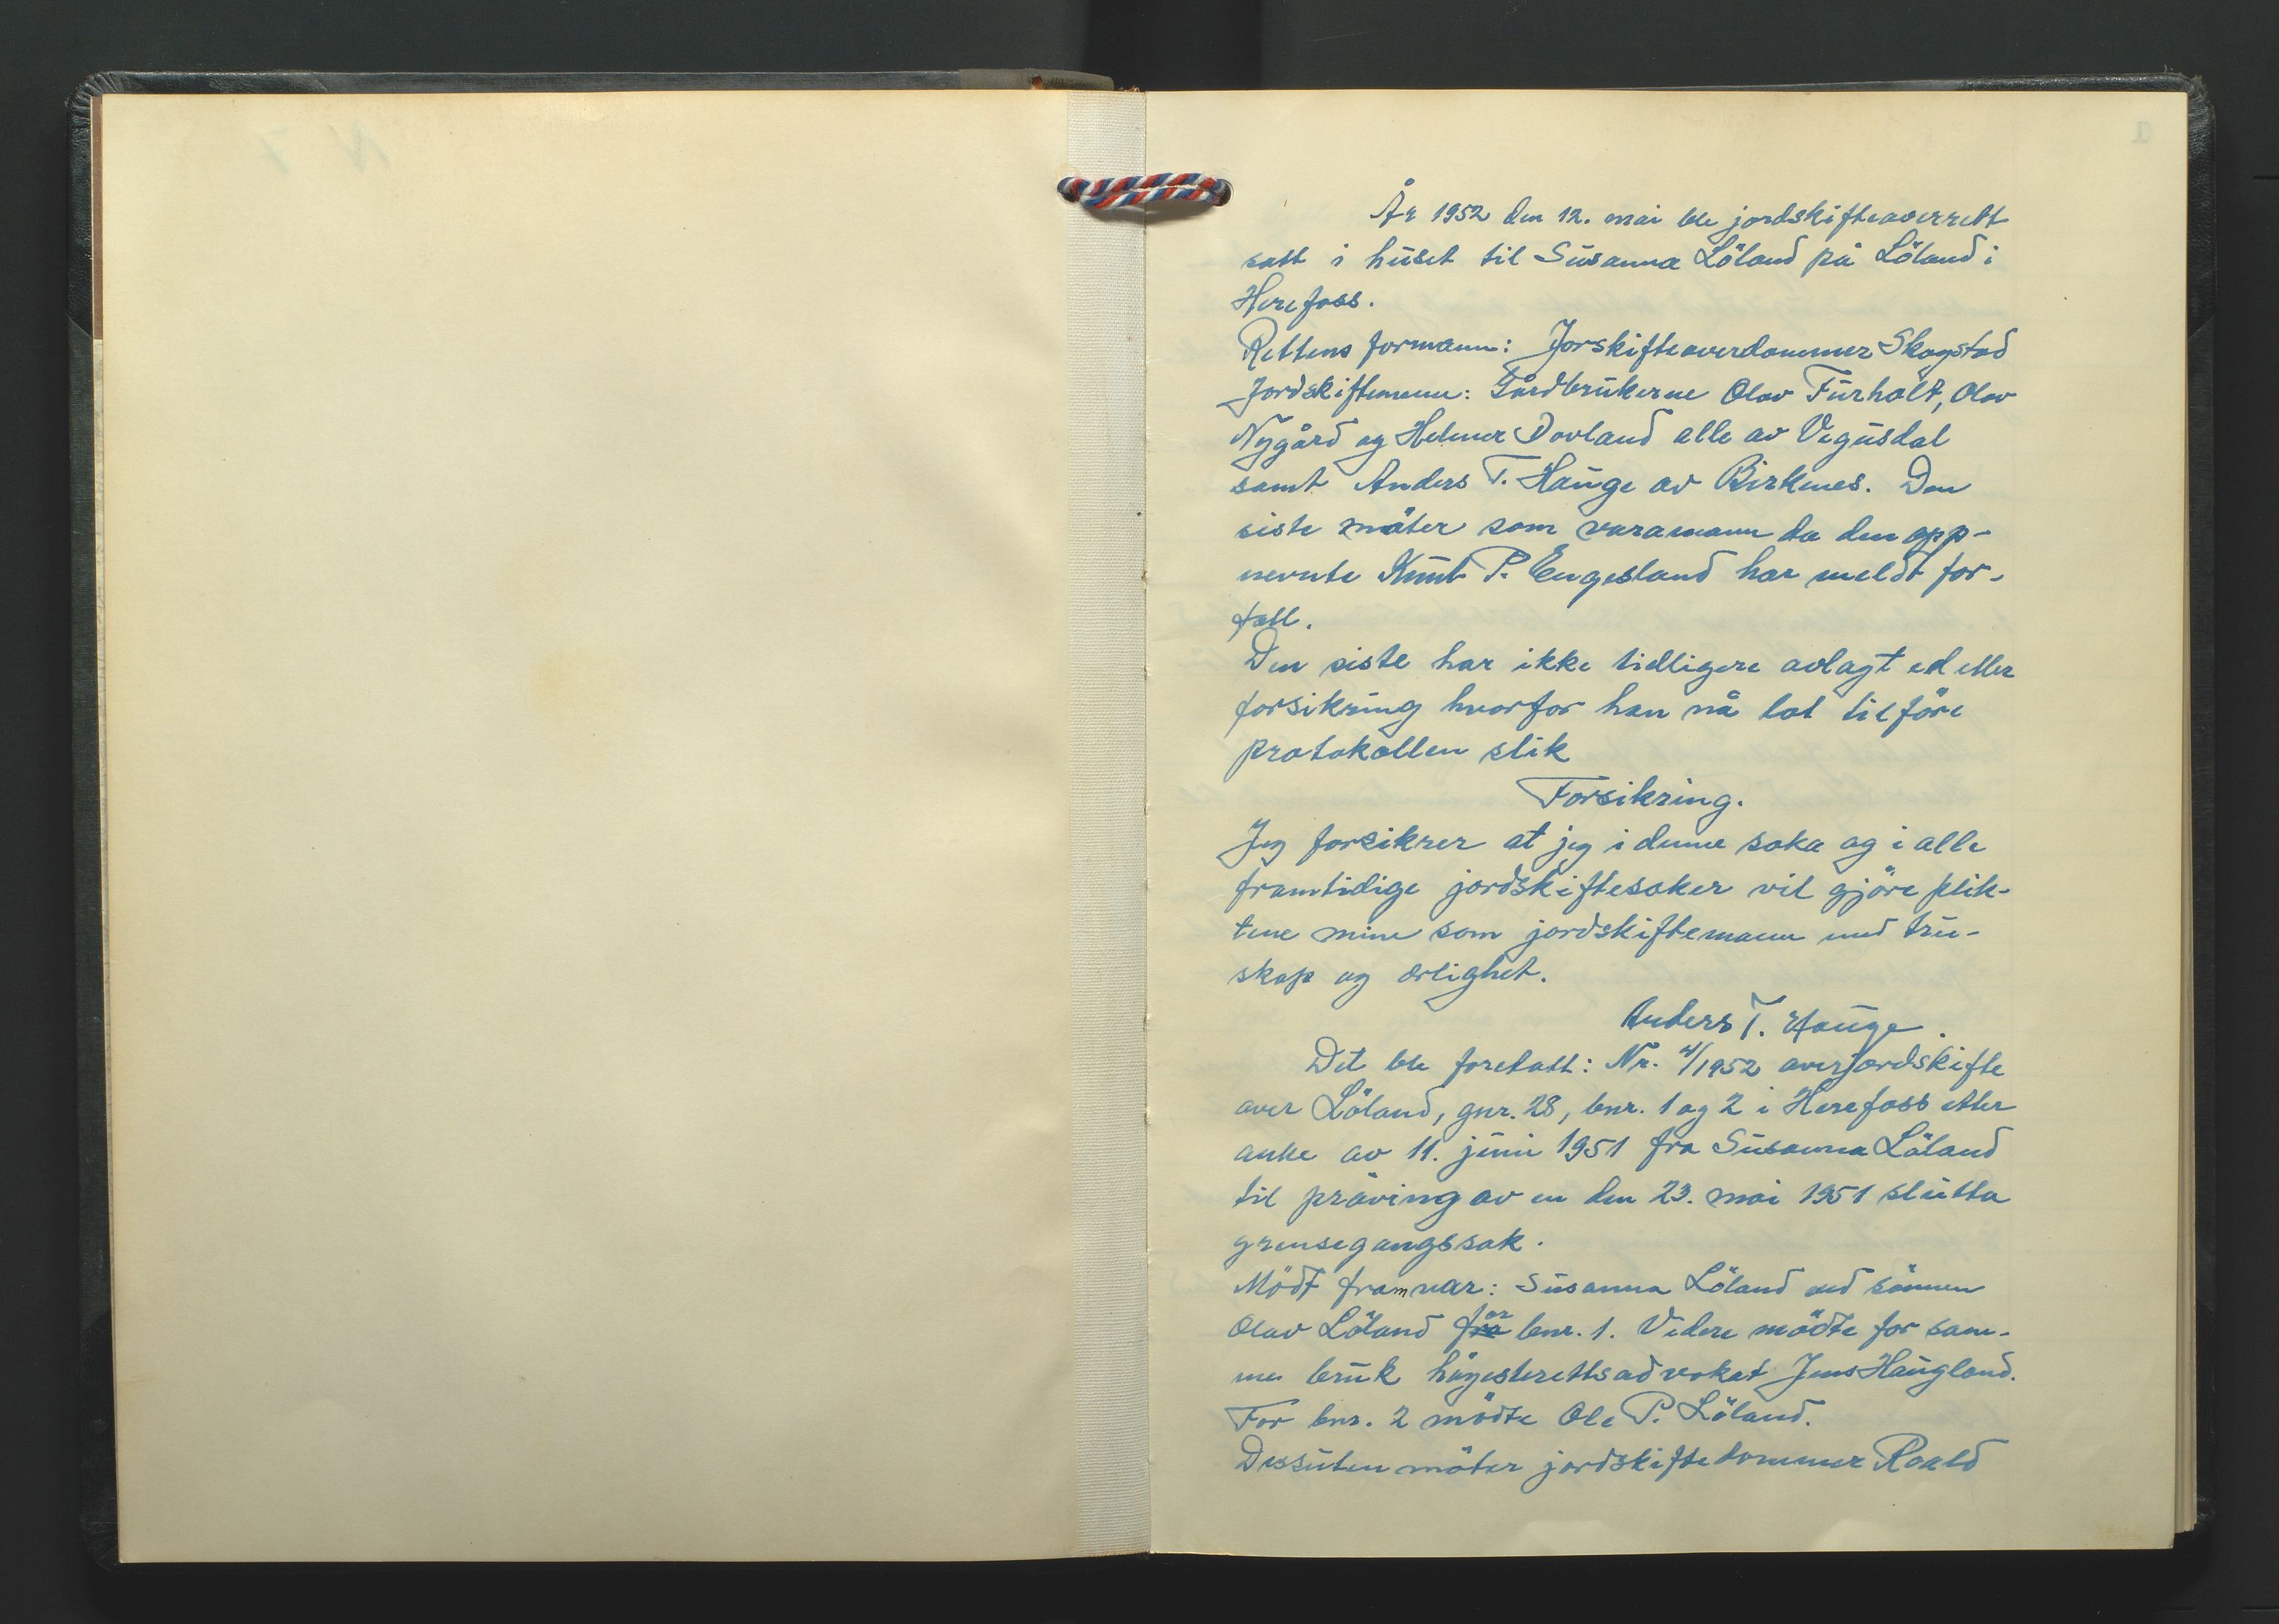 År 1952 den 12. mai ble jordskifteoverrett
satt i huset til Susanna Löland på Löland i
Herefoss.
Rettens formann: Jorskifteoverdommer Skogstad
Jordskiftemenn: Gårdbrukerne Olav Furholt, Olav
Nygård og Helmer Dovland alle av Vegusdal
samt Anders T. Hauge av Birkenes. Den
siste möter som varamann da den opp-
nevnte Knut P. Engesland har meldt for-
fall.
Den siste har ikke tidligere avlagt ed eller
forsikring hvorfor han nå lot tilföre
protokollen slik
Forsikring.
Jeg forsikrer at jeg i denne saka og i alle
framtidige jordskiftesaker vil gjöre plik-
tene mine som jordskiftemann med tru-
skap og ærlighet.
Anders T. Hauge.
Det ble foretatt: Nr. 4/1952 overjordskifte
over Löland, gnr. 28, bnr. 1 og 2 i Herefoss etter
anke av 11. juni 1951 fra Susanna Löland
til pröving av en den 23. mai 1951 slutta
grensegangssak.
Mödt fram var: Susanna Löland ved sönnen
Olav Löland for bnr. 1. Videre mödte for sam-
me bruk högesterettsadvokat Jens Haugland.
For bnr. 2 mödte Ole P. Löland.
Dessuten möter jordskiftedommer Roald